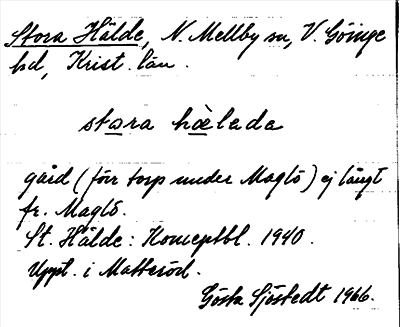 Stora Hälde, N. Mellby sn, V. Göinge
hd, Krist. län.
stɑra hæ̀lada
gård (förr torp under Maglö) ej långt
fr. Maglö.
St. Hälde: Konceptbl. 1940.
Uppt. i Matteröd.
Gösta Sjöstedt 1966.